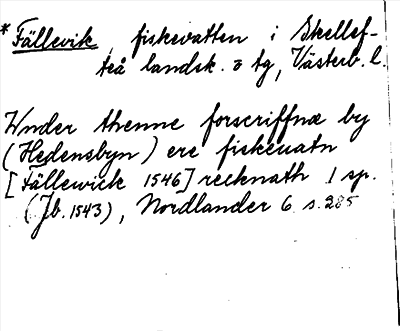 * Fällevik, fiskevatten i Skellef-
teå landsk. o tg, Västerb. l.
Wnder thenne forscriffnæ by
(Hedensbyn) ere fiskeuatn
[Fällewick 1546] recknath 1 sp.
(Jb. 1543), Nordlander 6 s. 285